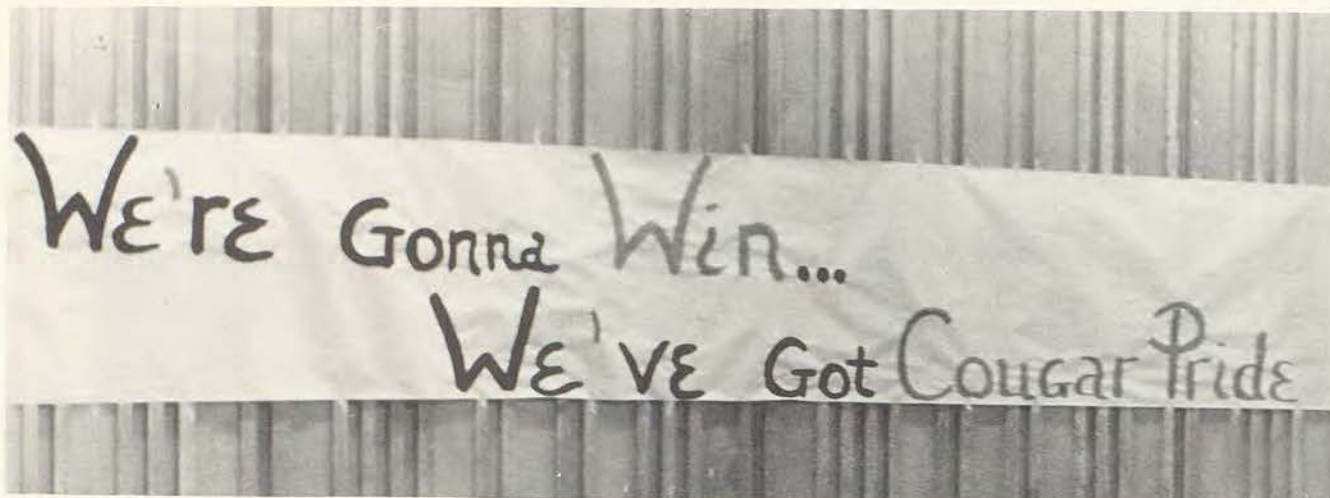 We're Gonna Win...
We've Got Cougar Pride